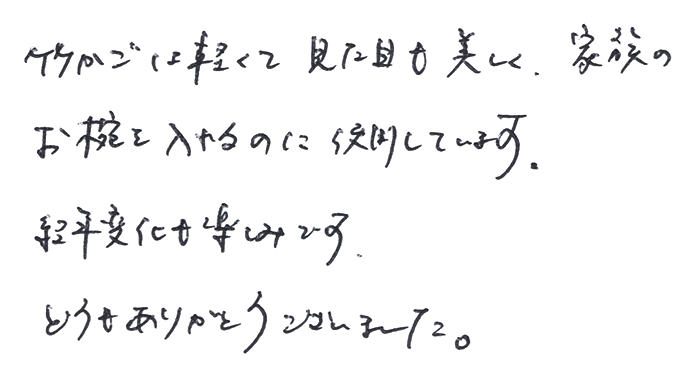 竹かごは軽くて見た目も美しく、家族の
お椀を入れるのに使用しています。
経年変化も楽しみです。
どうもありがとうございました。